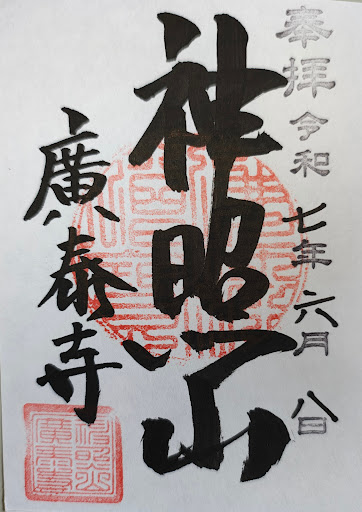 奉拝 令和七年六月八日
神照山
廣泰寺